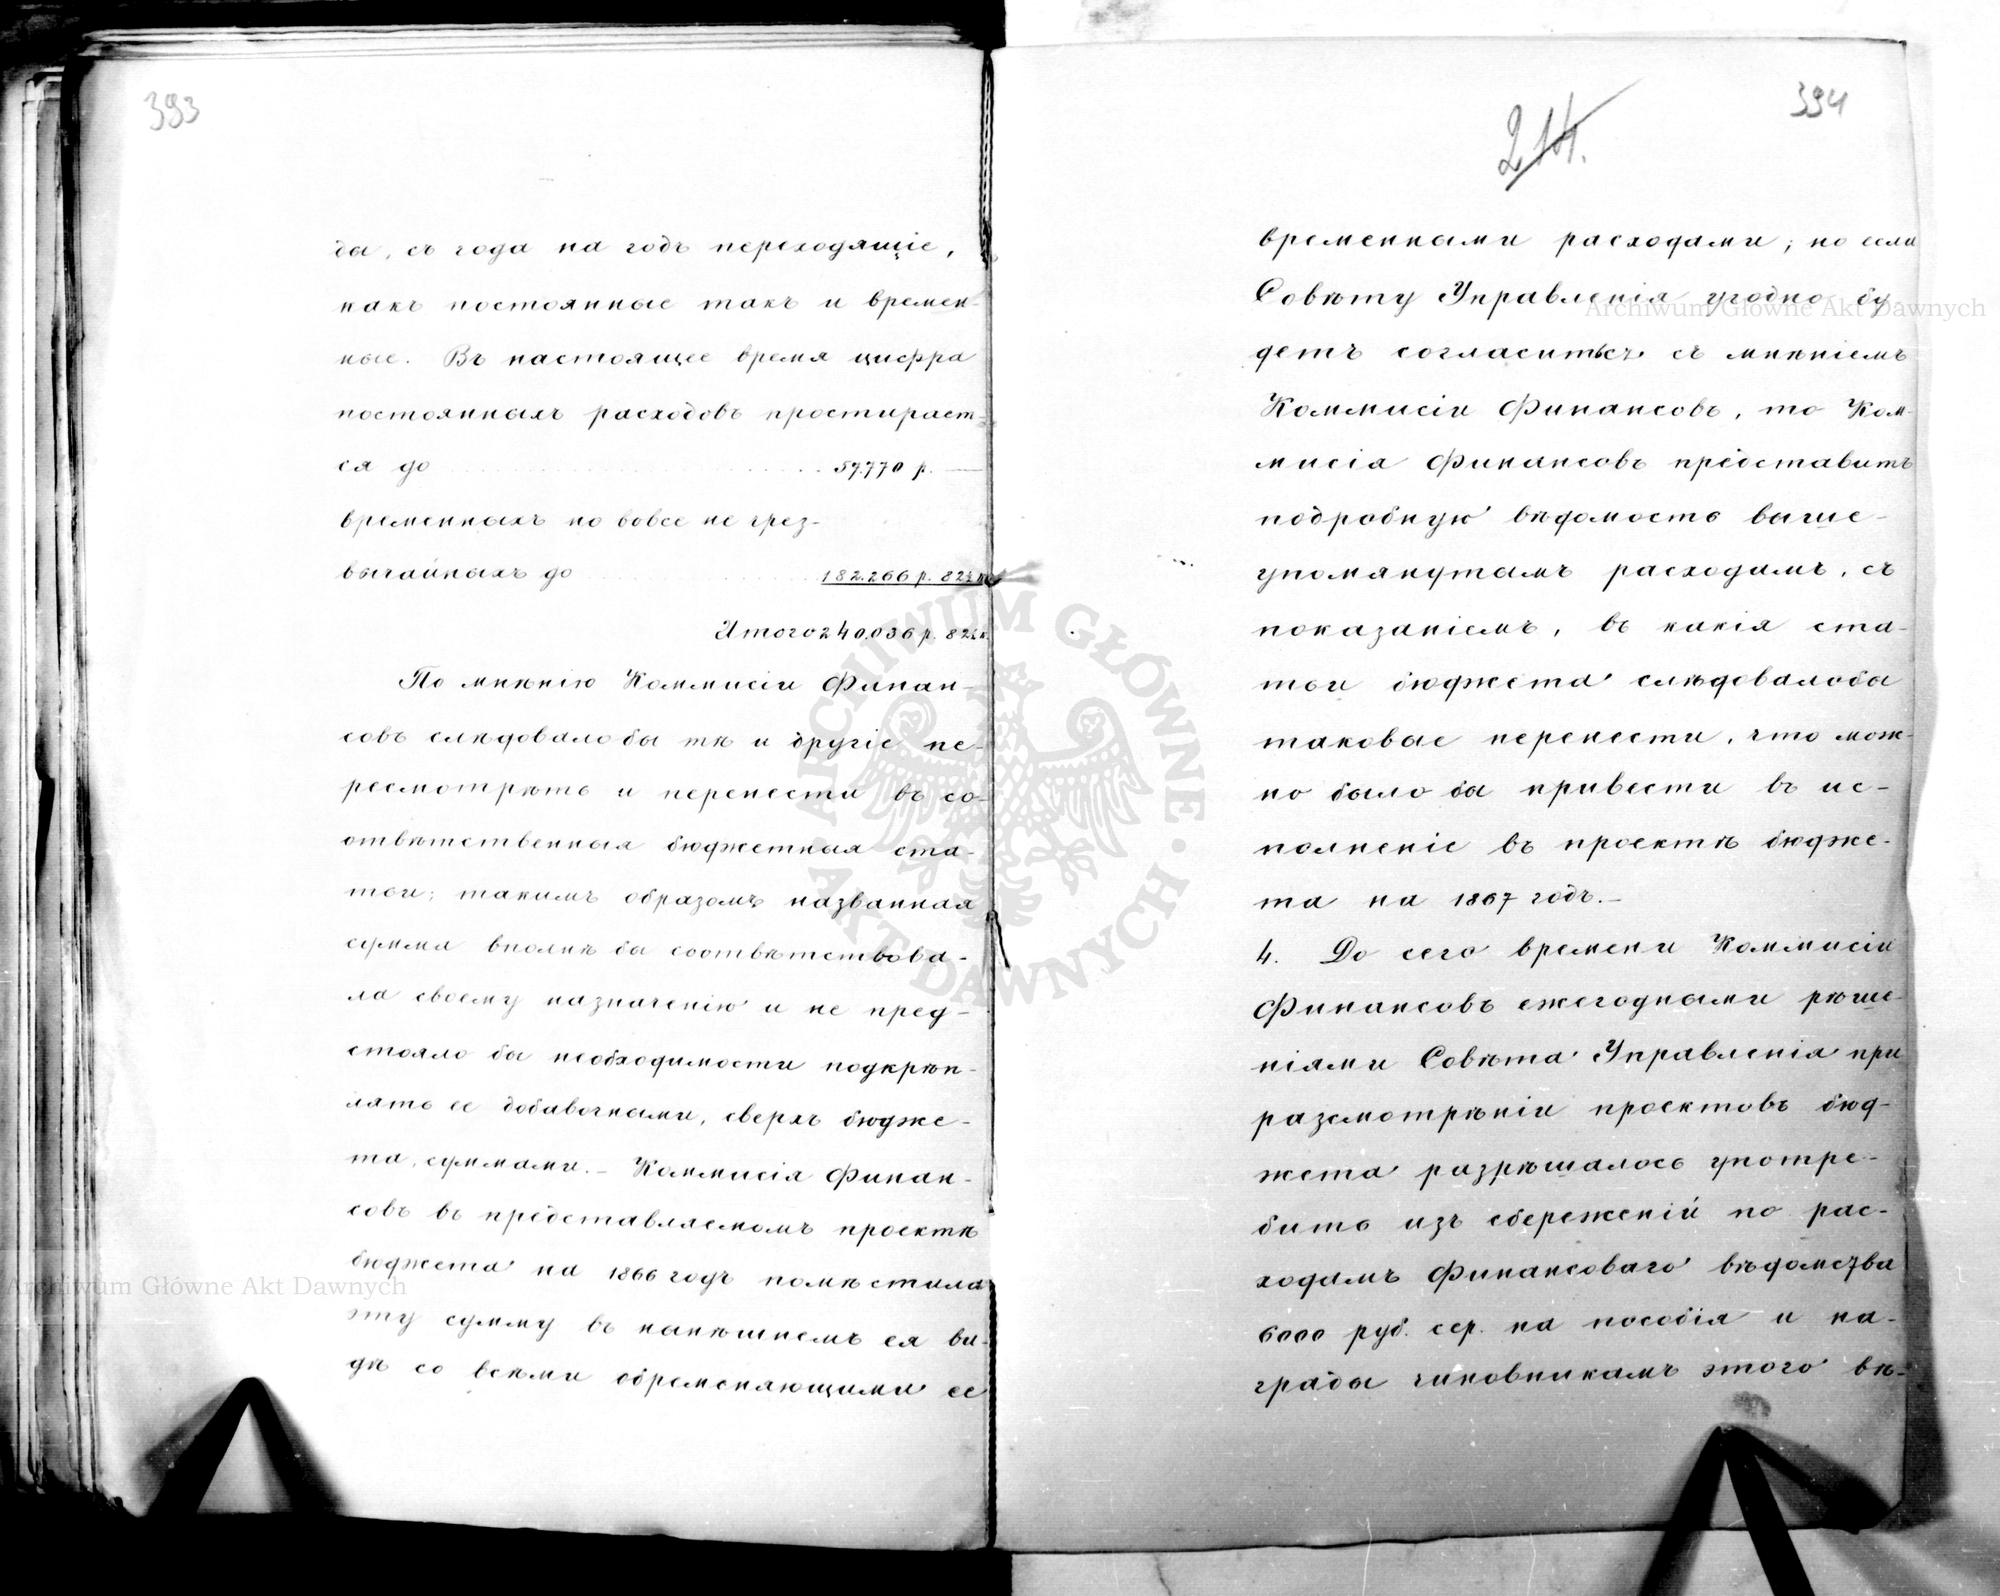 393
ды, съ года на годъ переходящіе,
какъ постоянные такъ и времен-
ные. Въ настоящее время цифра
постоянныхъ расходовъ простирает-
ся до 57.770 р. —
временныхъ но вовсе не чрез-
вычайныхъ до 182.266 р. 82½ к.
Итого 240.036 р. 82½ к.
По мнѣнію Коммисіи Финан-
совъ слѣдовало бы тѣ и другіе пе-
ресмотрѣть и перенести въ со-
отвѣтственныя бюджетныя ста-
тьи; такимъ образомъ названная
сумма вполнѣ бы соотвѣтствова-
ла своему назначенію и не пред-
стояло бы необходимости подкрѣп-
лять ее добавочными, сверхъ бюдже-
та, суммами. – Коммисія Финан-
совъ въ представляемомъ проектѣ
бюджета на 1866 годъ помѣстила
эту сумму въ нынѣшнемъ ея ви-
дѣ со всѣми обременяющими ее
394
214.
временными расходами; но если
Совѣту Управленія угодно бу-
детъ согласиться съ мнѣніемъ
Коммисіи Финансовъ, то Ком-
мисія Финансовъ представитъ
подробную вѣдомость выше-
упомянутымъ расходамъ, съ
показаніемъ, въ какія ста-
тьи бюджета слѣдовало бы
таковые перенести, что мож-
но было бы привести въ ис-
полненіе въ проектѣ бюдже-
та на 1867 годъ. –
4. До сего времени Коммисіи
Финансовъ ежегодными рѣше-
ніями Совѣта Управленія при
разсмотрѣніи проектовъ бюд-
жета разрѣшалось употре-
бить изъ сбереженій по рас-
ходамъ Финансоваго вѣдомства
6000 руб. сер. на пособія и на-
грады чиновникамъ этого вѣ-
Archiwum Główne Akt Dawnych
Archiwum Główne Akt Dawnych
ARCHIWUM GŁÓWNE • AKT DAWNYCH •